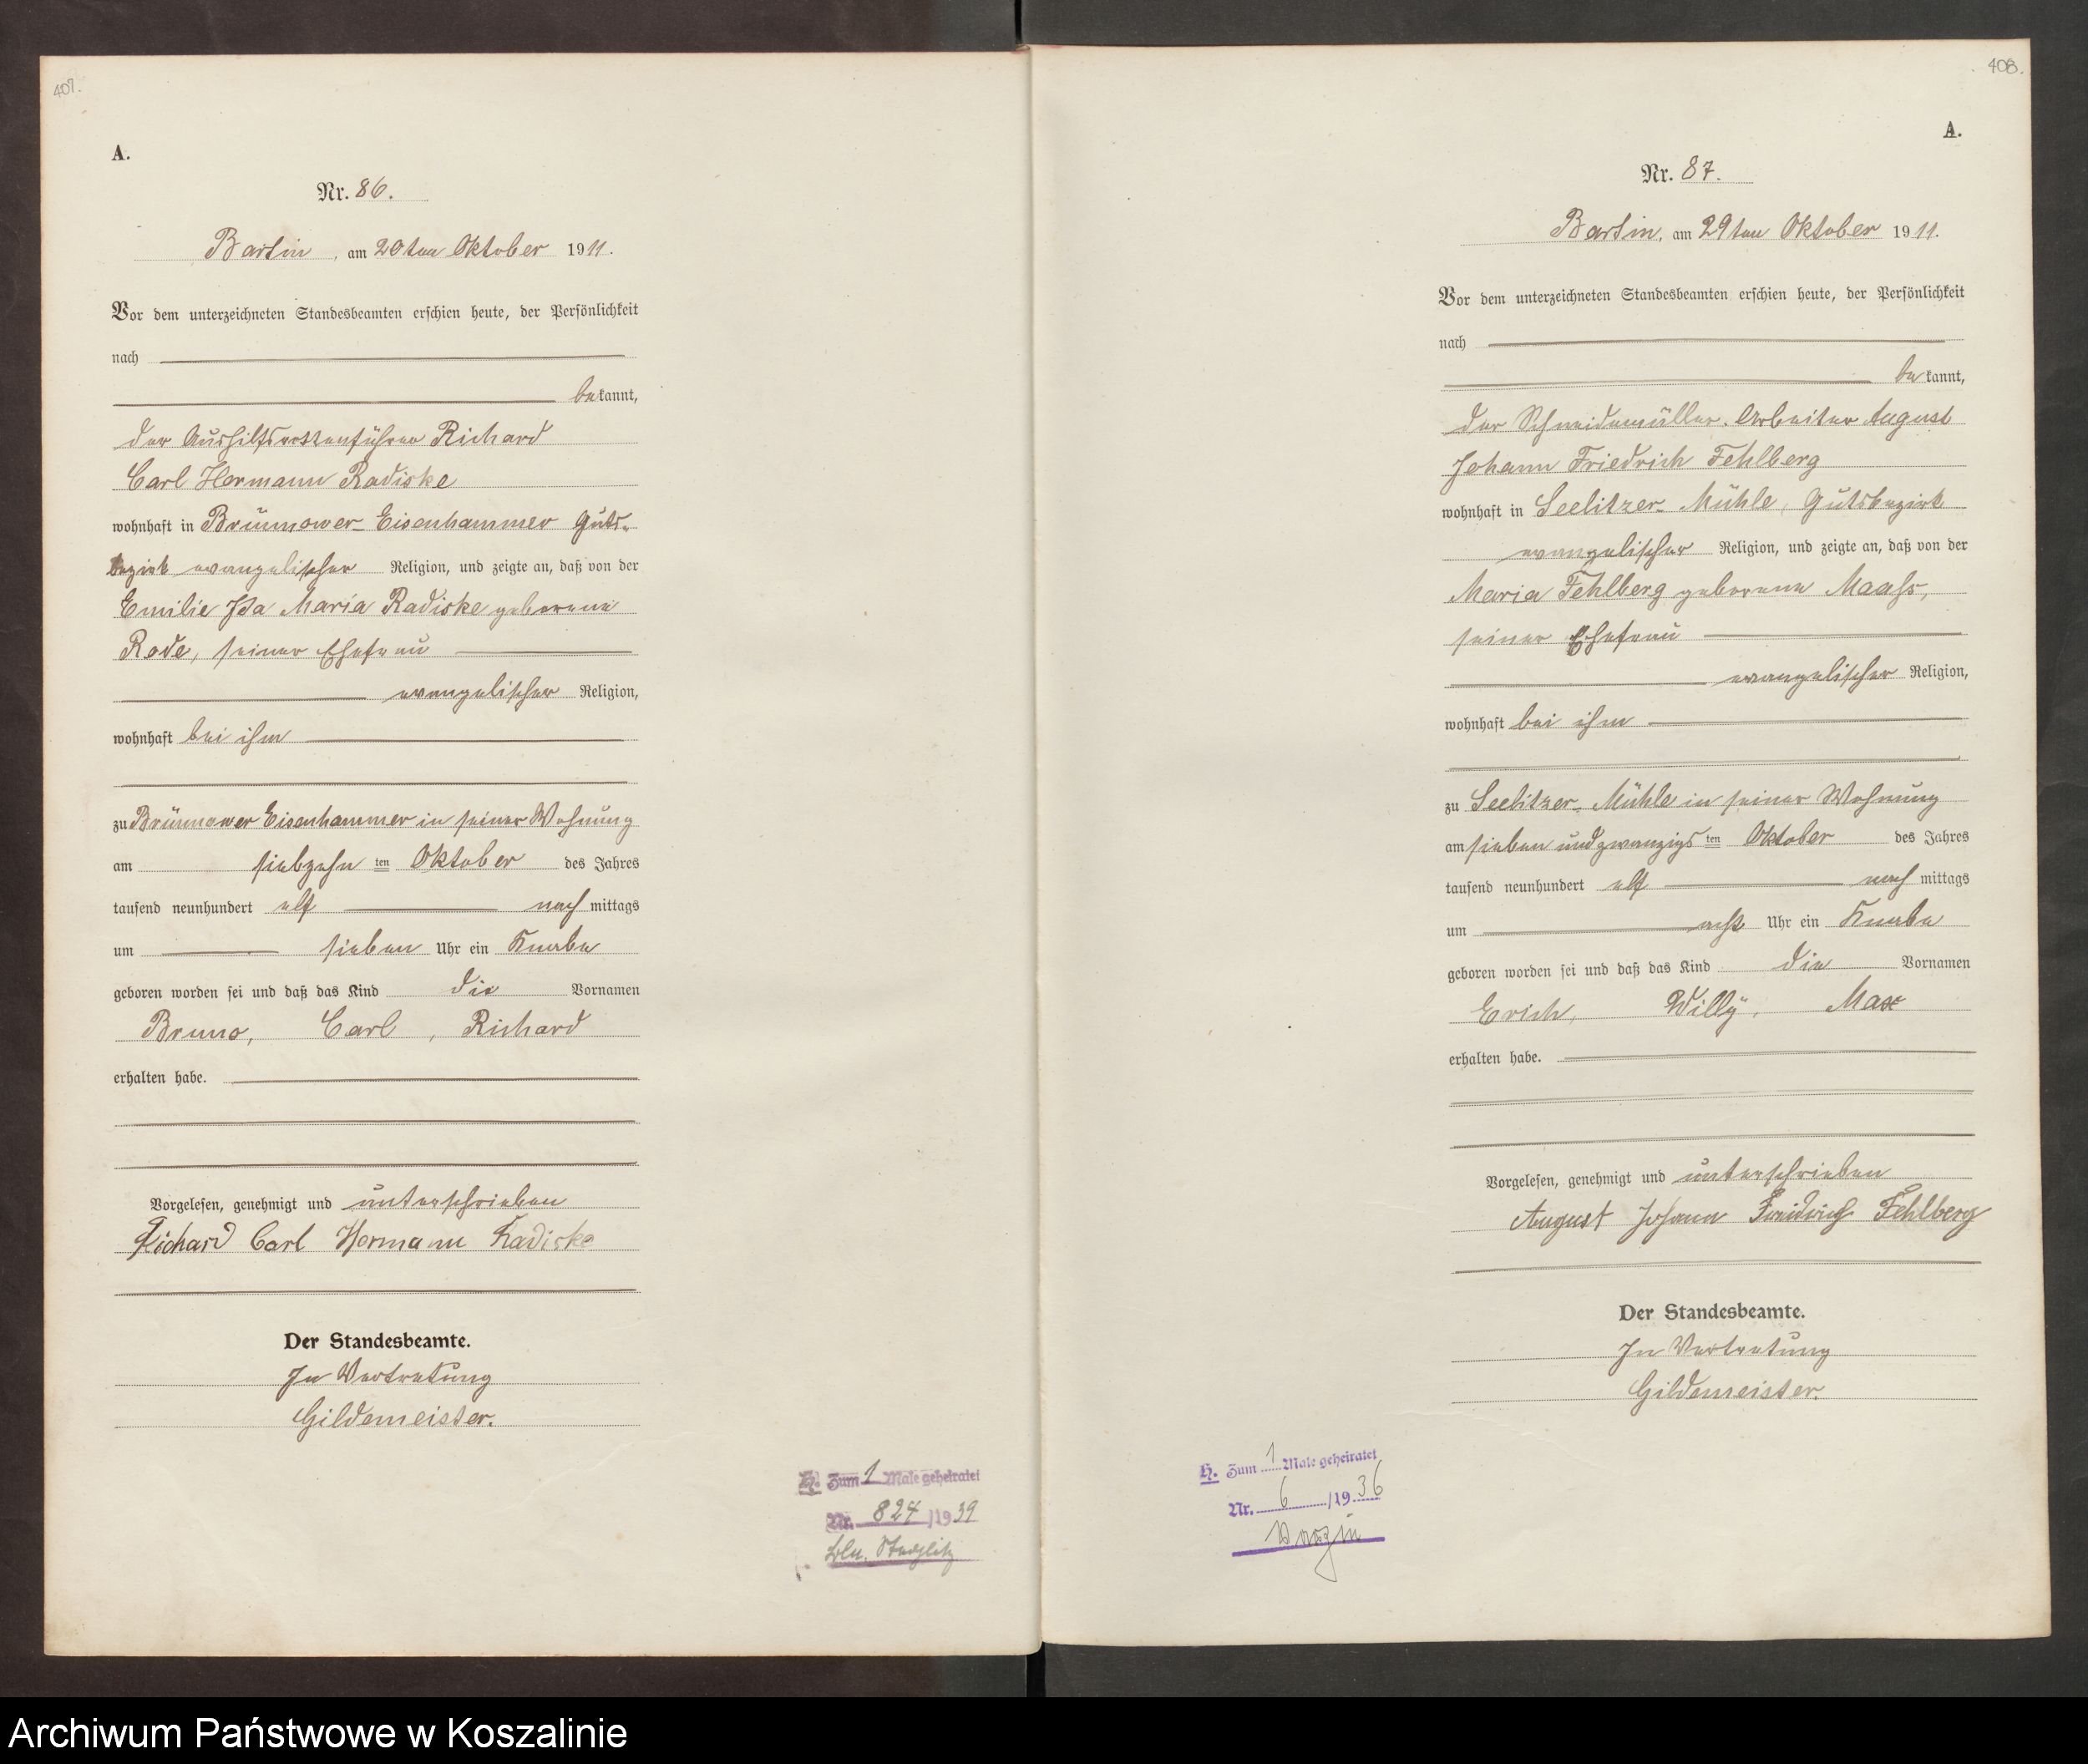 407.
A.
Nr. 86.
Bartin, am 20ten Oktober 1911.
Vor dem unterzeichneten Standesbeamten erschien heute, der Persönlichkeit
nach
bekannt,
der Aushilfsrottenführer Richard
Carl Hermann Radiske
wohnhaft in Brünnower-Eisenhammer Guts-
bezirk evangelischer Religion, und zeigte an, daß von der
Emilie Ida Maria Radiske geborene
Rode, seiner Ehefrau
evangelischer Religion,
wohnhaft bei ihm
zu Brünnower Eisenhammer in seiner Wohnung
am siebzehn ten Oktober des Jahres
tausend neunhundert elf nachmittags
um sieben Uhr ein Knabe
geboren worden sei und daß das Kind die Vornamen
Bruno, Carl, Richard
erhalten habe.
Vorgelesen, genehmigt und unterschrieben
Richard Carl Hermann Radiske
Der Standesbeamte.
In Vertretung
Gildemeister.
H. Zum 1 Male geheiratet
Nr. 824/1939
Bln. Steglitz
408.
A.
Nr. 87.
Bartin, am 29ten Oktober 1911.
Vor dem unterzeichneten Standesbeamten erschien heute, der Persönlichkeit
nach
bekannt,
der Schneidemüller-Arbeiter August
Johann Friedrich Fehlberg
wohnhaft in Seelitzer-Mühle, Gutsbezirk
evangelischer Religion, und zeigte an, daß von der
Maria Fehlberg geborene Maaß,
seiner Ehefrau
evangelischer Religion,
wohnhaft bei ihm
zu Seelitzer-Mühle in seiner Wohnung
am sieben und zwanzigs ten Oktober des Jahres
tausend neunhundert elf nachmittags
um acht Uhr ein Knabe
geboren worden sei und daß das Kind die Vornamen
Erich, Willÿ, Max
erhalten habe.
Vorgelesen, genehmigt und unterschrieben
August Johann Friedrich Fehlberg
Der Standesbeamte.
In Vertretung
Gildemeister.
H. Zum 1 Male geheiratet
Nr. 6/1936
Varzin
Archiwum Państwowe w Koszalinie